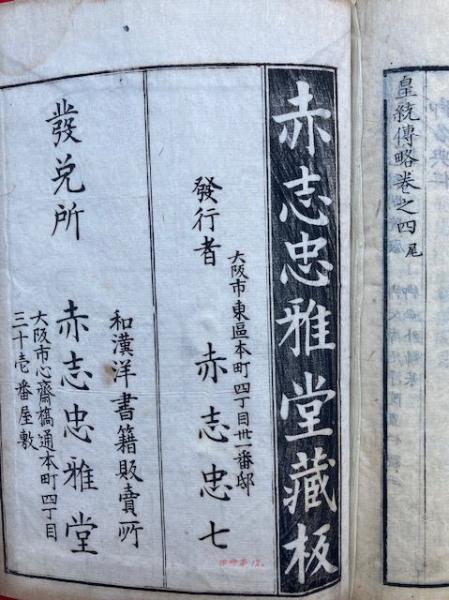 皇統傳略巻之四尾
赤志忠雅堂藏板
大阪市東區本町四丁目卅一番邸
發行者 赤志忠七
和漢洋書籍販賣所
發兌所 赤志忠雅堂
大阪市心齋橋通本町四丁目
三十壱番屋敷